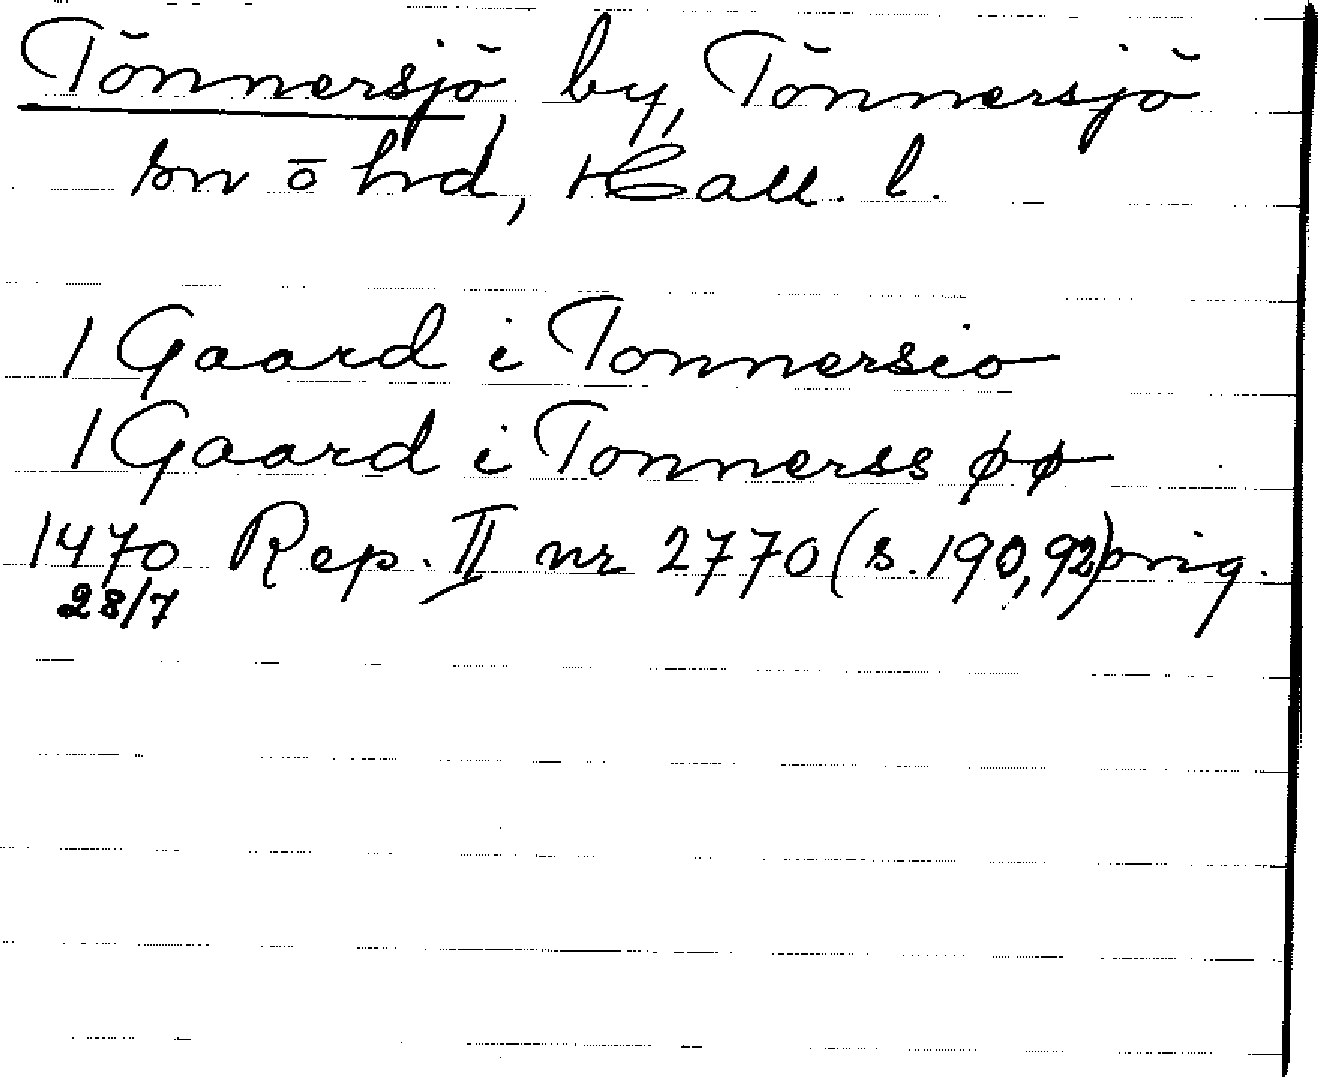 Tönnersjö by, Tönnersjö
sn ō hd, Hall. l.
1 Gaard i Tonnersio
1 Gaard i Tonnerss øø
1470 Rep. II nr 2770 (s. 190, 92) orig.
28/7